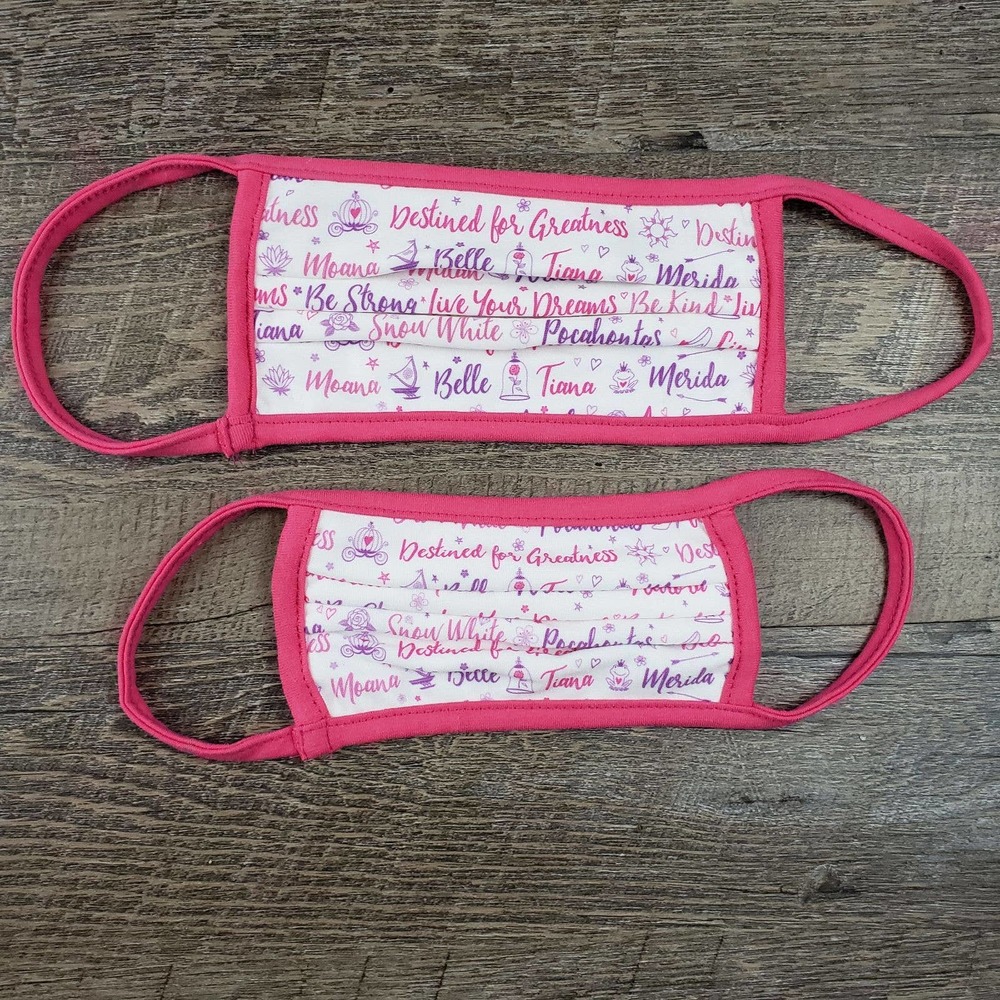 Destined for Greatness
Moana Belle Tiana Merida
Be Strong Live Your Dreams Be Kind
Snow White Pocahontas
Moana Belle Tiana Merida
Destined for Greatness
Snow White Pocahontas
Destined for
Moana Belle Tiana Merida